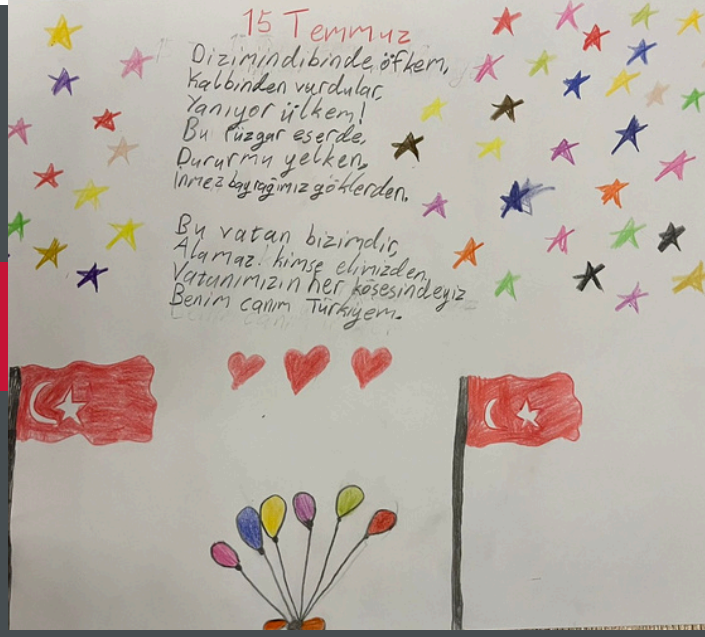 15 Temmuz
Dizimindibinde öfkem,
Kalbinden vurdular,
Yanıyor ülkem!
Bu rüzgar eserde,
Dururmu yelken,
İnmez bayrağımız göklerden.
Bu vatan bizimdir,
Alamaz! kimse elimizden,
Vatanımızın her köşesindeyiz
Benim canım Türkiyem.